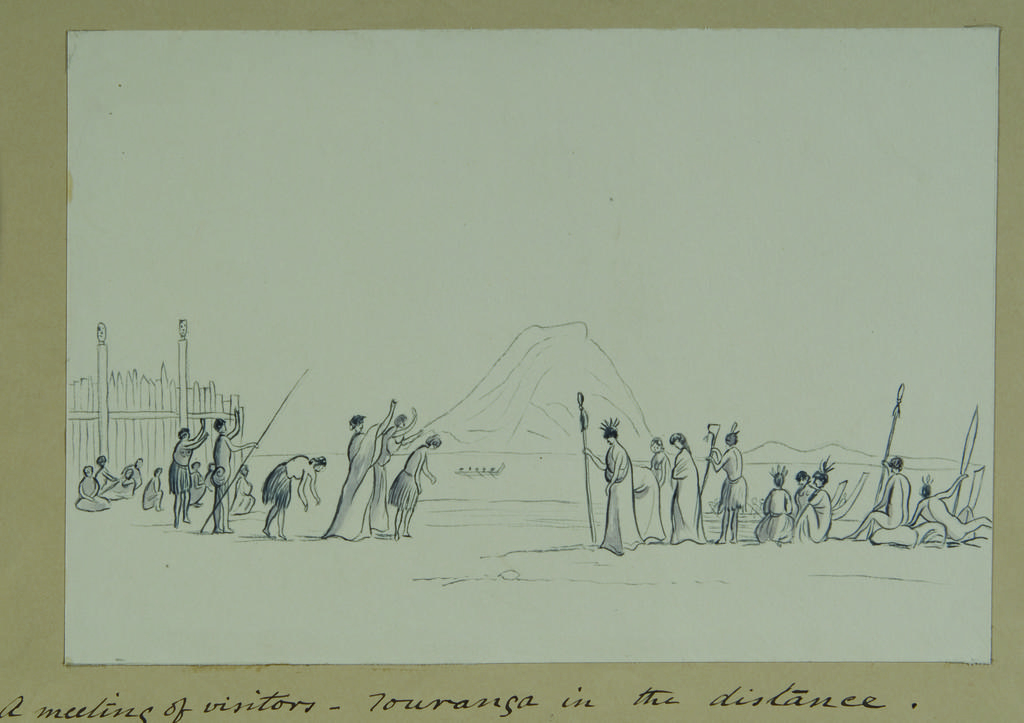 A meeting of visitors - Touranga in the distance.